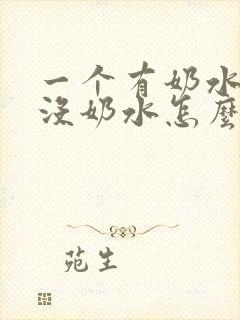 一个有奶水
没奶水怎麼
苑生